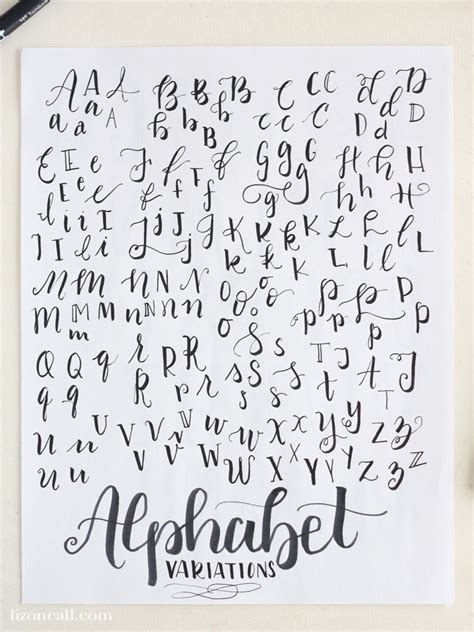 A A A B B B C C C d d D
a a A b b B C C C D d D
E E e f f f G G g h h H
E e e f f f g G g h h H
i i i J j J K k K L l L
I I i i j J j k k k L l l
M M m n N N O o O P P P
M M m n n n O o o p p p
Q Q q r R R s S s T T J
q q R r r s S S t T J
u U U V V V W W X X Y y Z z Z
u u V V V W W X Y Y Z z
Alphabet
VARIATIONS
lizoncall.com